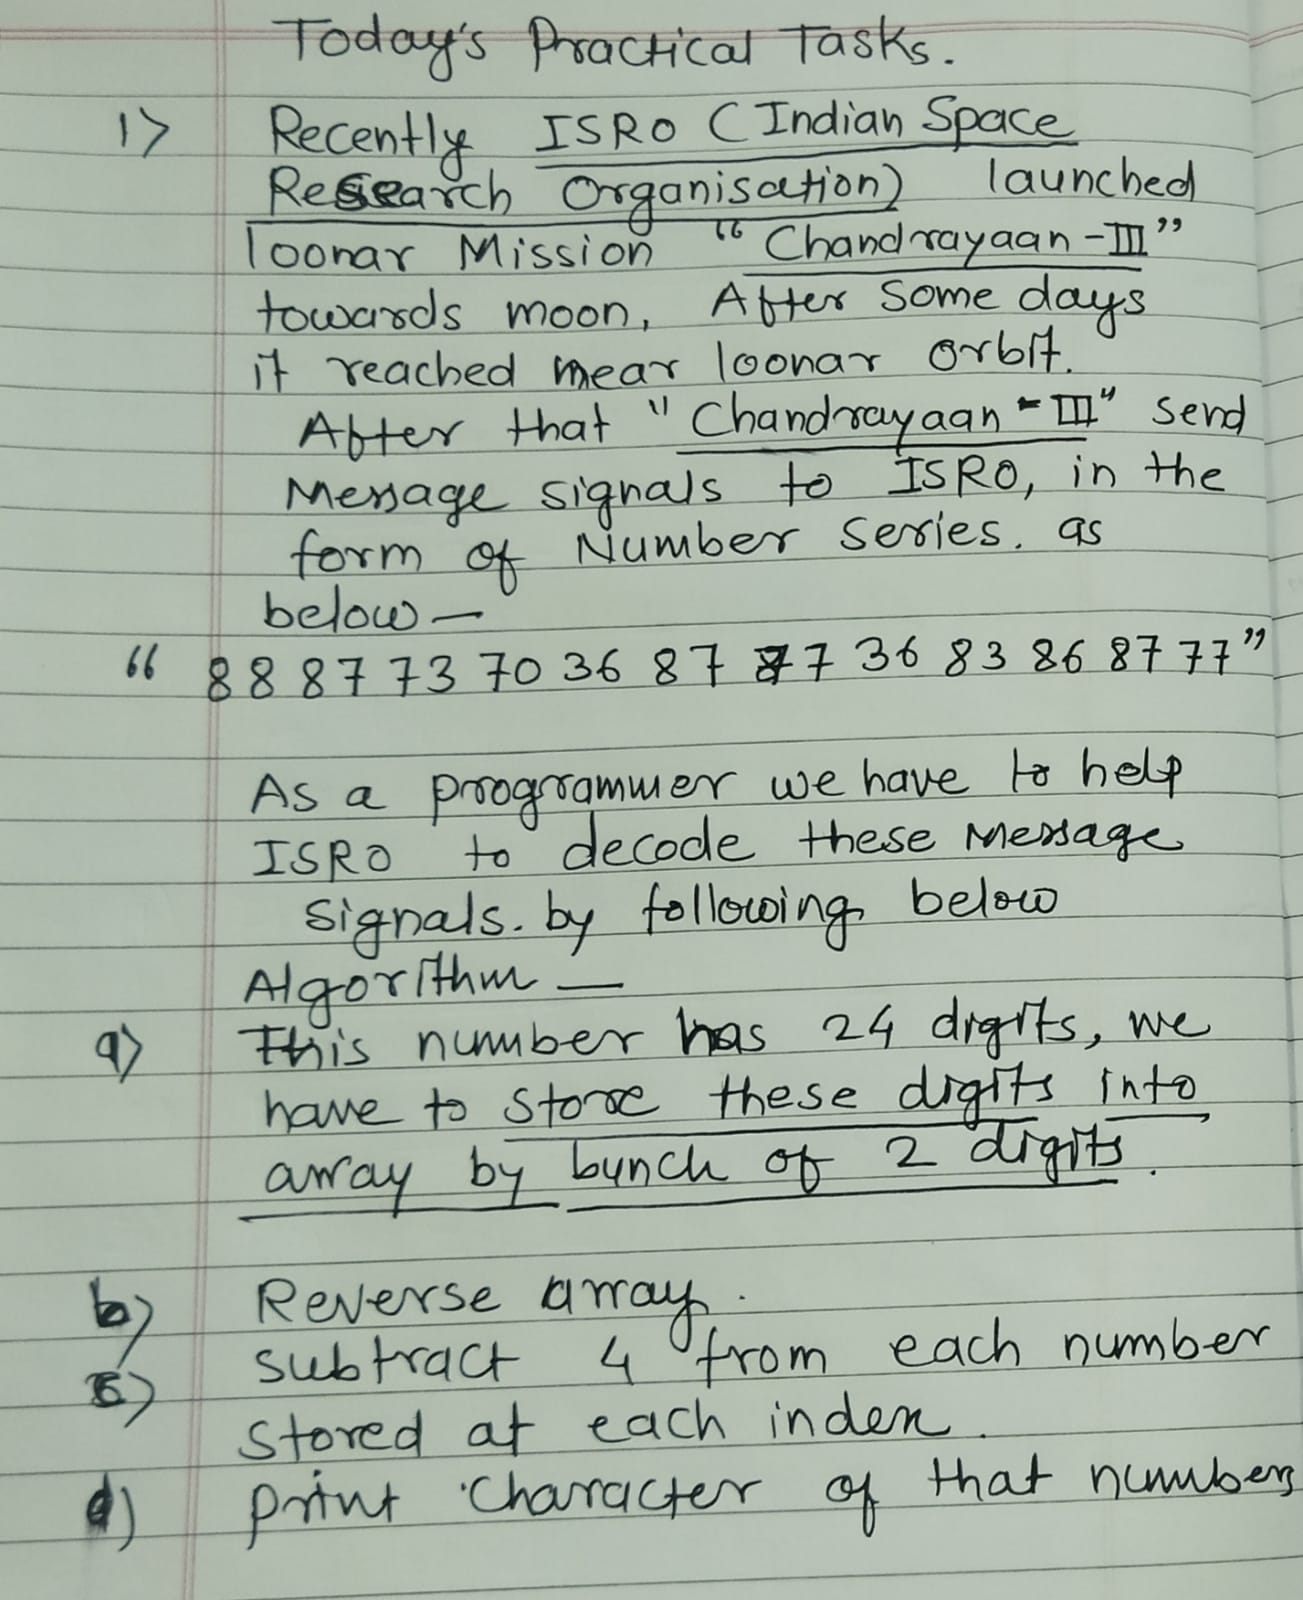 Today's Practical Tasks.
1) Recently ISRO (Indian Space
Research Organisation) launched
loonar Mission "Chandrayaan-III"
towards moon, After some days
it reached near loonar orbit.
After that "Chandrayaan-III" send
Message signals to ISRO, in the
form of Number series. as
below —
"88 87 73 70 36 87 77 36 83 86 87 77"
As a programmer we have to help
ISRO to decode these Message
signals. by following below
Algorithm —
a) This number has 24 digits, we
have to store these digits into
array by bunch of 2 digits.
b) Reverse array.
c) subtract 4 from each number
stored at each index.
d) print character of that numbers